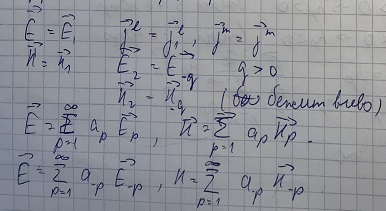 E⃗ = E⃗₁ j⃗ᵉ = j⃗₁ᵉ, j⃗ᵐ = j⃗ᵐ
H⃗ = H⃗₁ E⃗₂ = E⃗₋q q > 0
H⃗₂ = H⃗₋q ( бежит влево)
E⃗ = ∑_{p=1}^{∞} a_p E⃗_p, H⃗ = ∑_{p=1}^{∞} a_p H⃗_p.
E⃗ = ∑_{p=1}^{∞} a₋p E⃗₋p, H = ∑_{p=1}^{∞} a₋p H⃗₋p